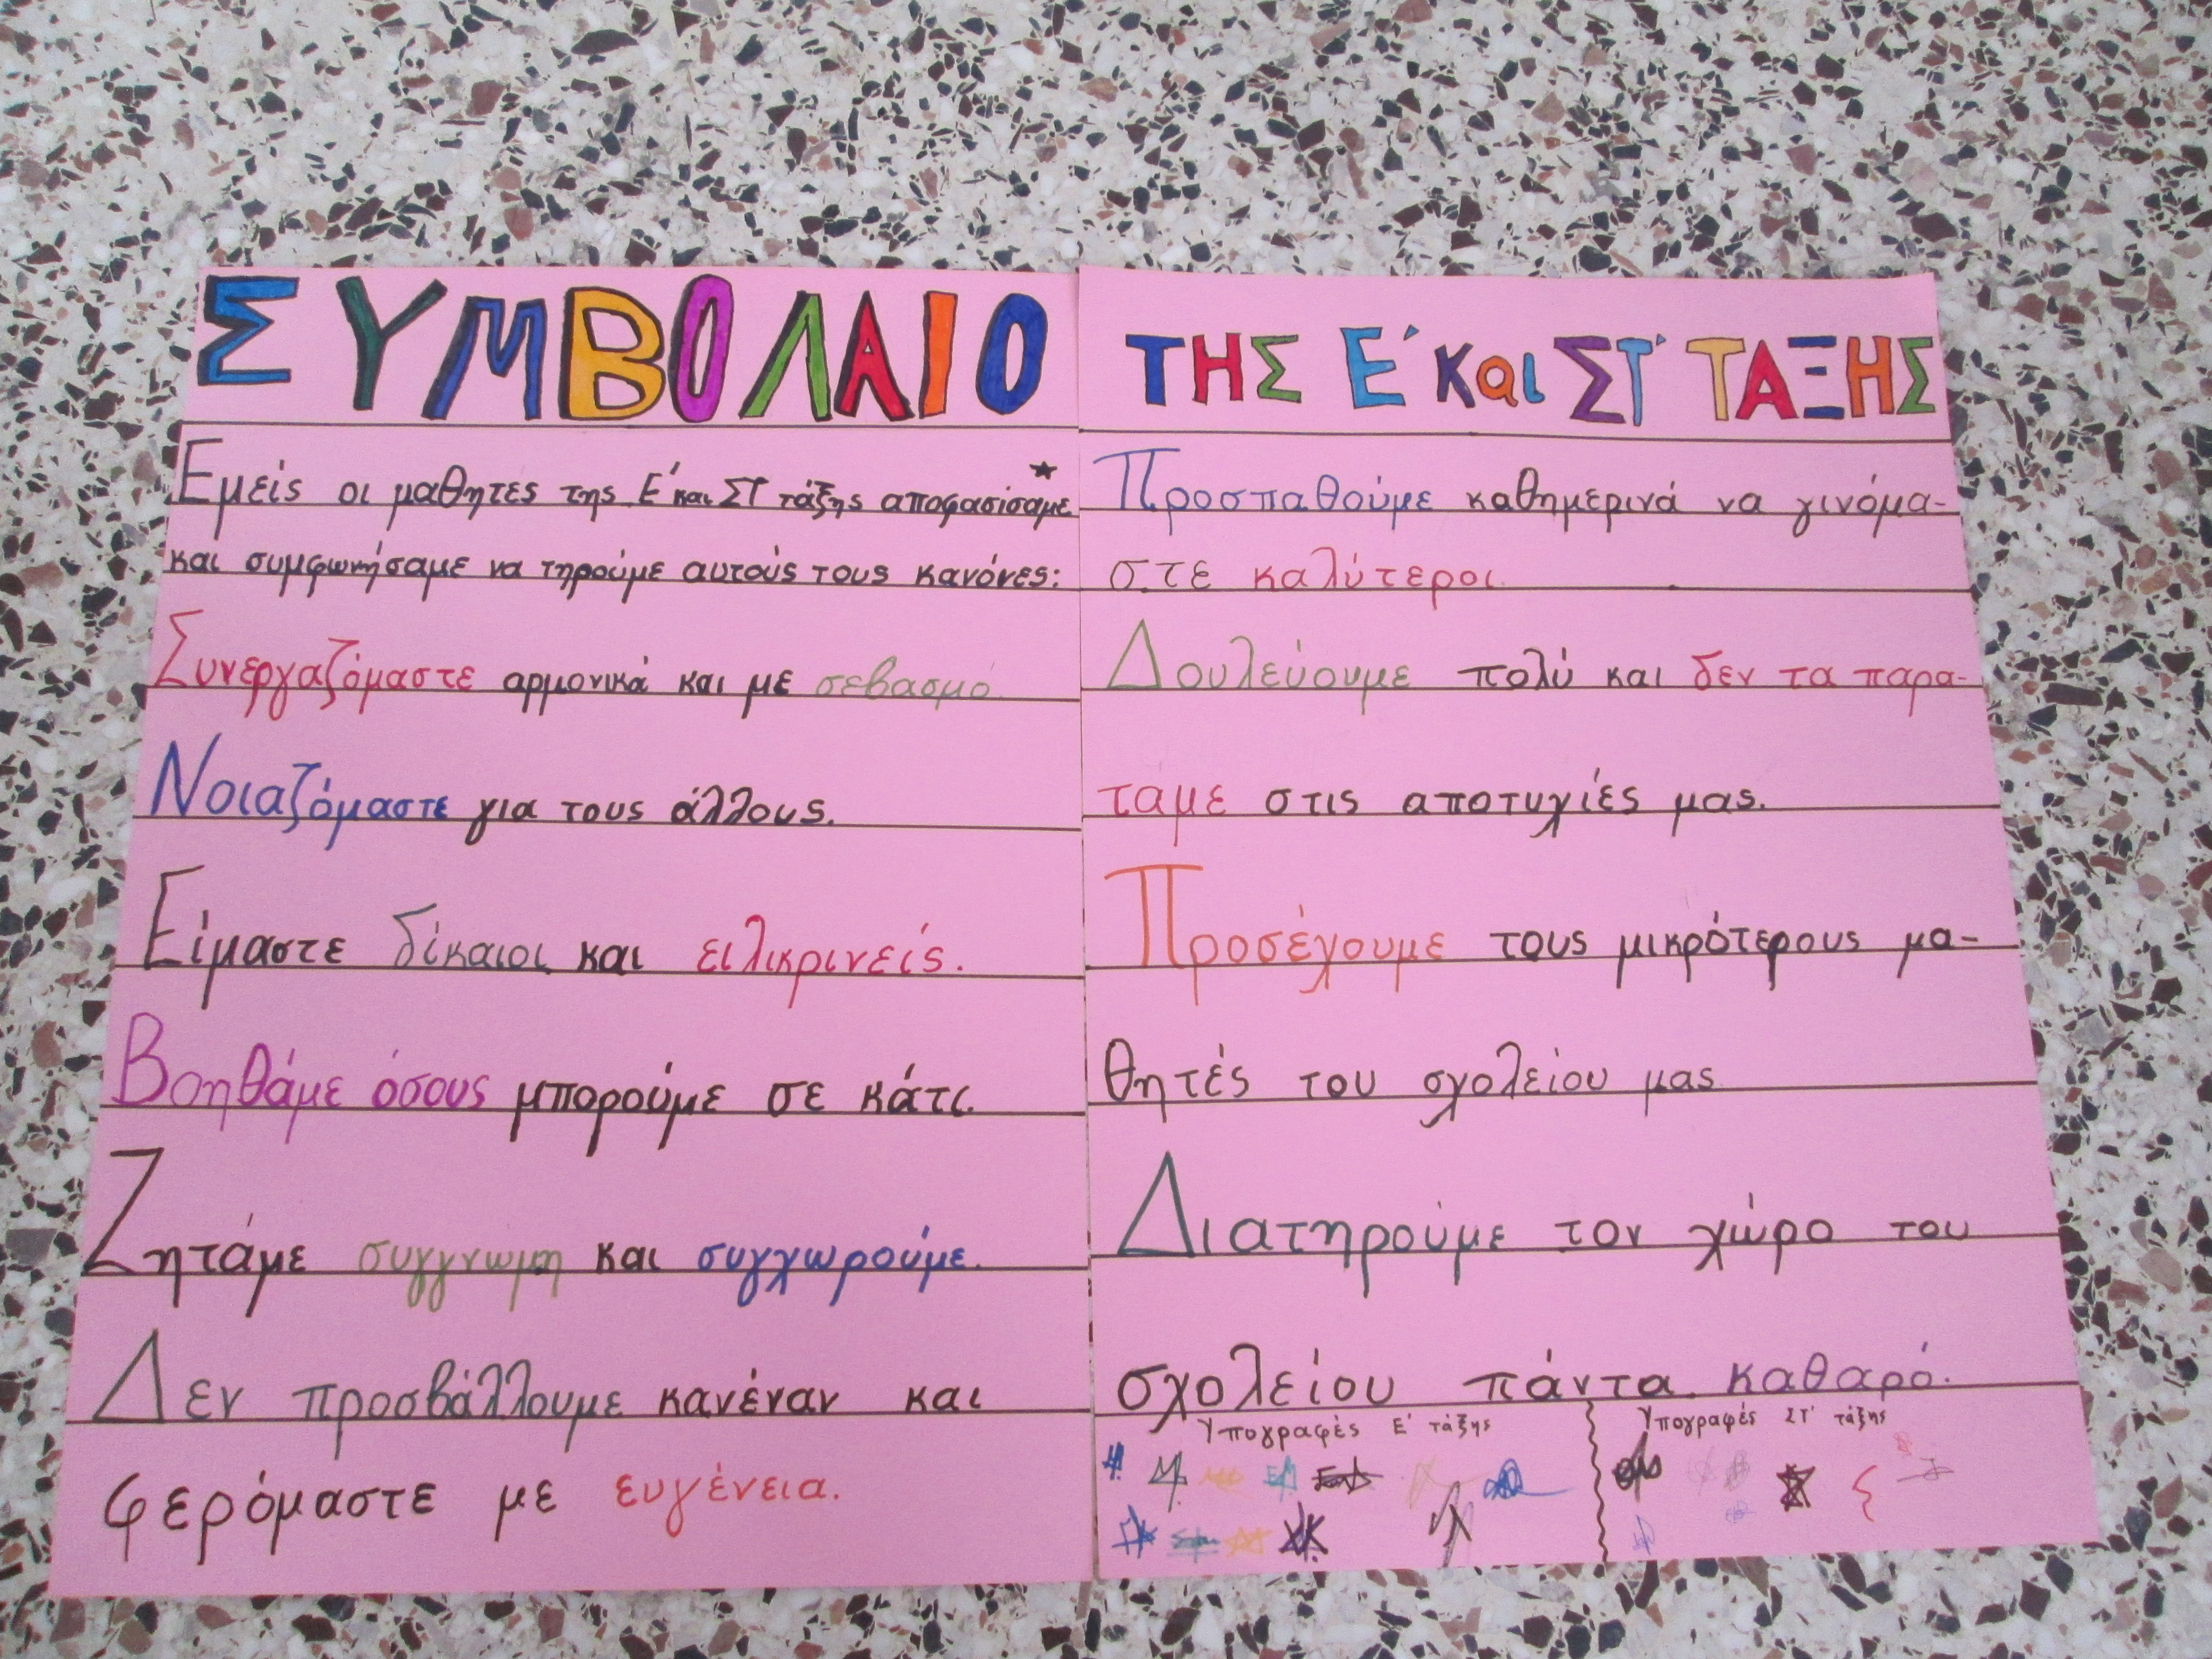 ΣΥΜΒΟΛΑΙΟ
Εμείς οι μαθητες της Ε΄ και ΣΤ τάξης αποφασίσαμε
και συμφωνήσαμε να τηρούμε αυτούς τους κανόνες:
Συνεργαζόμαστε αρμονικά και με σεβασμό.
Νοιαζόμαστε για τους άλλους.
Είμαστε δίκαιοι και ειλικρινείς.
Βοηθάμε όσους μπορούμε σε κάτι.
Ζητάμε συγγνωμη και συγχωρούμε.
Δεν προσβάλλουμε κανέναν και
φερόμαστε με ευγένεια.
ΤΗΣ Ε΄ και ΣΤ΄ ΤΑΞΗΣ
Προσπαθούμε καθημερινά να γινόμα-
στε καλύτεροι.
Δουλεύουμε πολύ και δεν τα παρα-
ταμε στις αποτυχίες μας.
Προσέχουμε τους μικρότερους μα-
θητές του σχολείου μας
Διατηρούμε τον χώρο του
σχολείου πάντα καθαρό.
Υπογραφές Ε΄ τάξης
Υπογραφές ΣΤ΄ τάξης